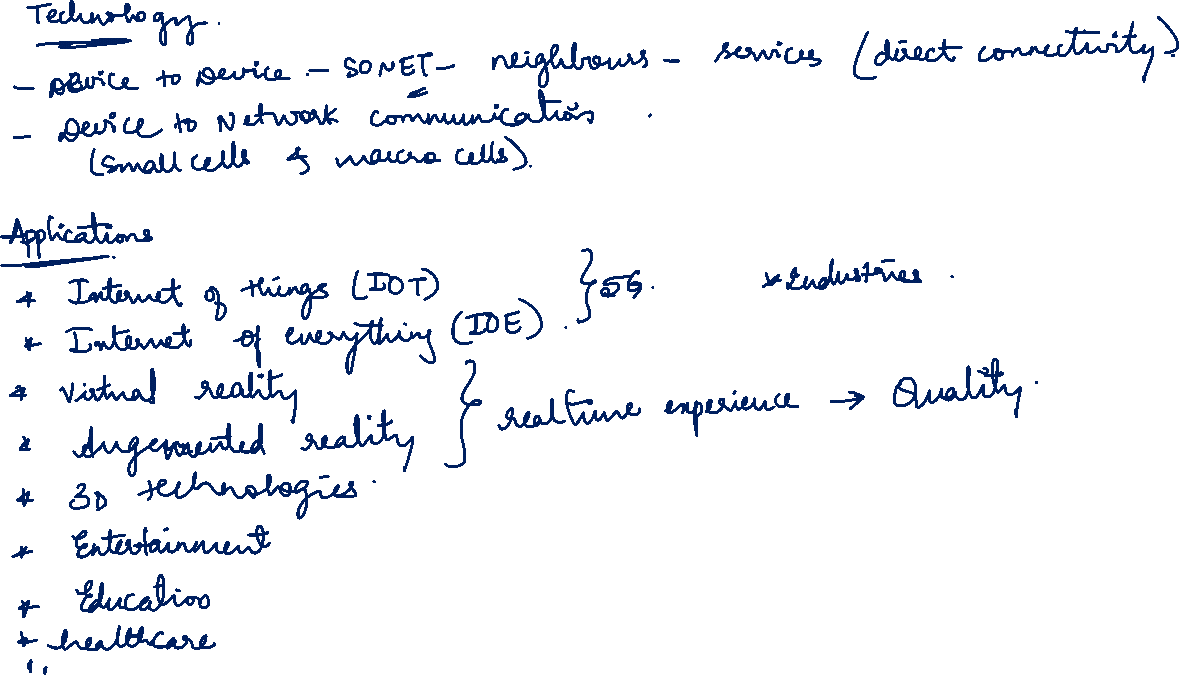 Technology.
- Device to Device - SONET - neighbours - services (direct connectivity)
- Device to Network communications.
(Small cells & macro cells).
Applications
* Internet of things (IOT) } 5G. * Industries.
* Internet of everything (IOE).
* Virtual reality } realtime experience → Quality.
* Augemented reality
* 3D technologies.
* Entertainment
* Education
* healthcare